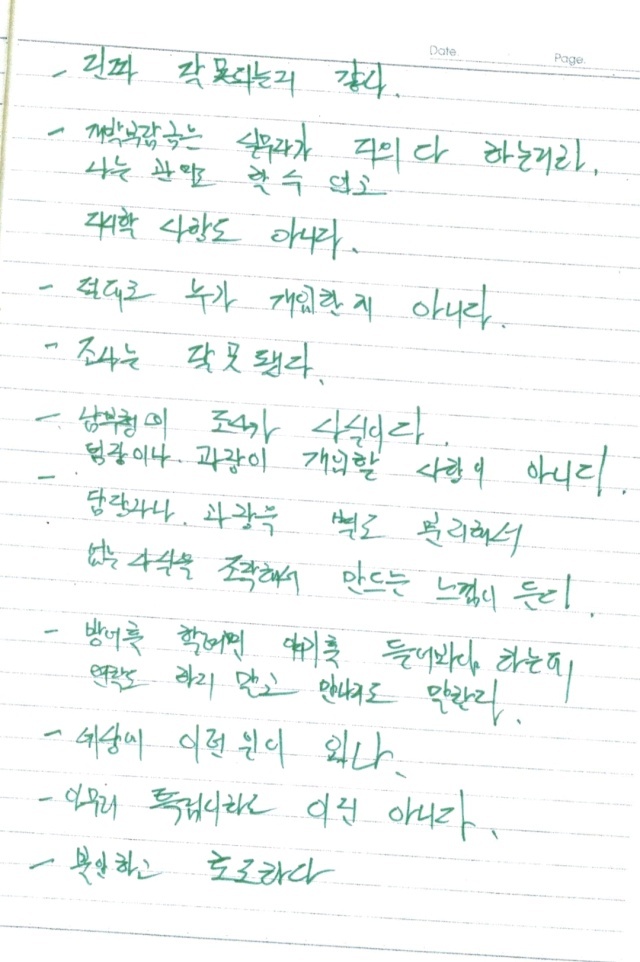 Date.
Page.
- 진짜 잘못되는거 같다.
- 개발부담금은 실무자가 다의 다 하는거라,
나는 관여도 할 수 없고
대학 사항도 아니다.
- 절대로 누가 개입한 게 아니다.
- 조사는 잘못됐다.
- 조사가 사실이다.
팀장이나 과장이 개입할 사항이 아니다.
- 담당자나 과장을 별도 분리해서
없는 사실을 조작해서 만드는 느낌이 든다.
- 방어를 할려면 얘기를 들어봐야 하는데
연락도 하지 말고 만나지도 말란다.
- 세상에 이런 일이 있나.
- 아무리 특검이라고 이건 아니다.
- 불안하고 초조하다